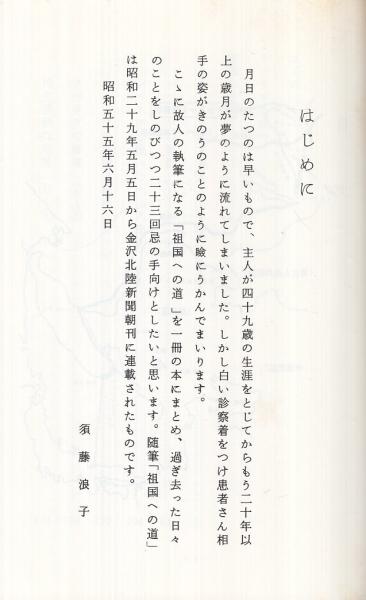 はじめに
月日のたつのは早いもので、主人が四十九歳の生涯をとじてからもう二十年以
上の歳月が夢のように流れてしまいました。しかし白い診察着をつけ患者さん相
手の姿がきのうのことのように瞼にうかんでまいります。
こゝに故人の執筆になる「祖国への道」を一冊の本にまとめ、過ぎ去った日々
のことをしのびつつ二十三回忌の手向けとしたいと思います。随筆「祖国への道」
は昭和二十九年五月五日から金沢北陸新聞朝刊に連載されたものです。
昭和五十五年六月十六日
須藤浪子